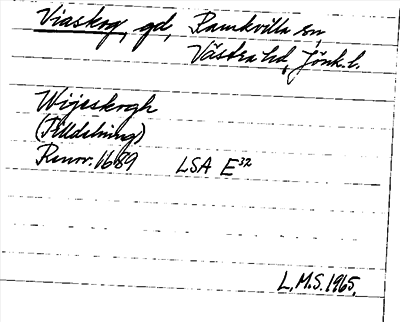 Viaskog, gd, Ramkvilla sn,
Västra hd, Jönk.l.
Wijeskogh
(Tilldelning)
Renov. 1689 LSA E³²
L.M.S. 1965.